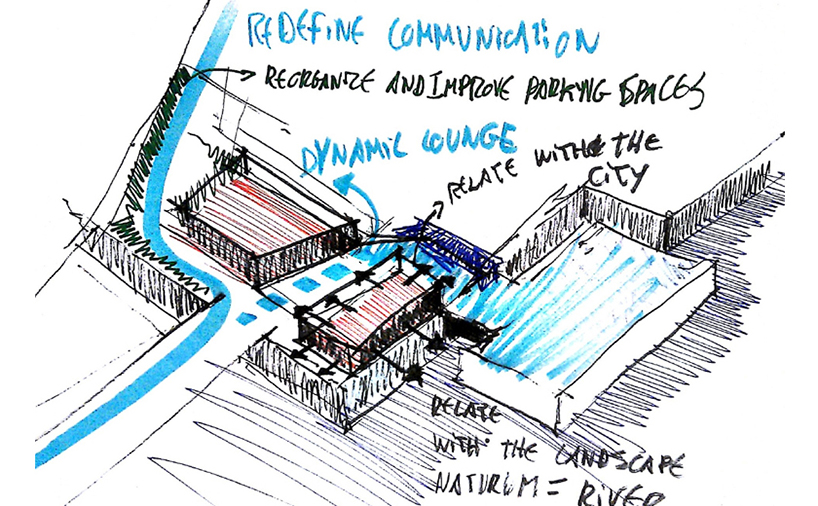 REDEFINE COMMUNICATION
REORGANIZE AND IMPROVE PARKING SPACES
DYNAMIC LOUNGE
RELATE WITH THE
CITY
RELATE
WITH THE LANDSCAPE
NATURUM = RIVER